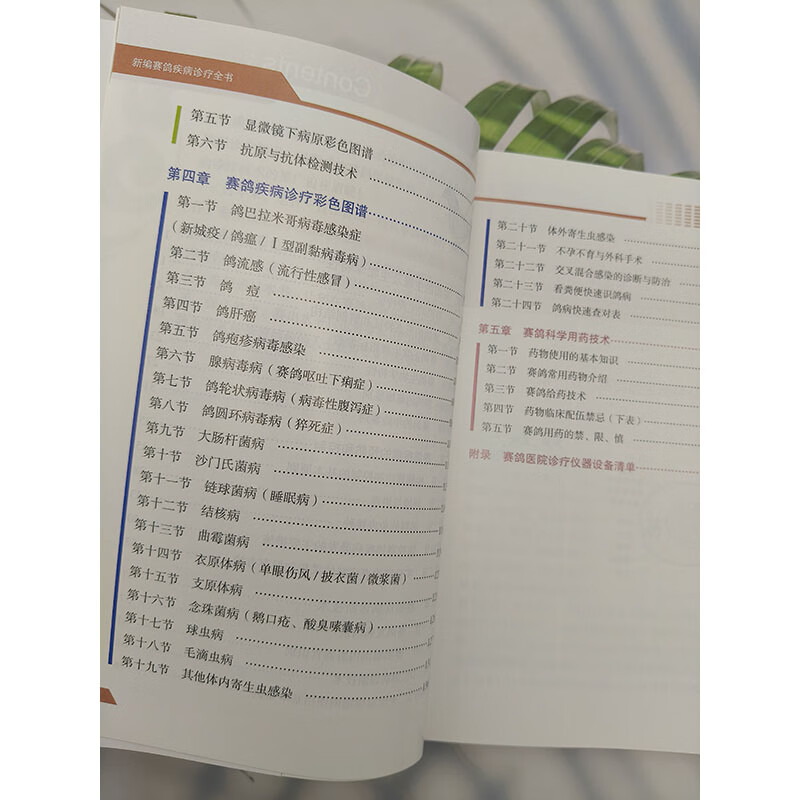 新编赛鸽疾病诊疗全书
第五节 显微镜下病原彩色图谱
第六节 抗原与抗体检测技术
第四章 赛鸽疾病诊疗彩色图谱
第一节 鸽巴拉米哥病毒感染症
（新城疫/鸽瘟/Ⅰ型副黏病毒病）
第二节 鸽流感（流行性感冒）
第三节 鸽 痘
第四节 鸽肝癌
第五节 鸽疱疹病毒感染
第六节 腺病毒病（赛鸽呕吐下痢症）
第七节 鸽轮状病毒病（病毒性腹泻症）
第八节 鸽圆环病毒病（猝死症）
第九节 大肠杆菌病
第十节 沙门氏菌病
第十一节 链球菌病（睡眠病）
第十二节 结核病
第十三节 曲霉菌病
第十四节 衣原体病（单眼伤风/披衣菌/微浆菌）
第十五节 支原体病
第十六节 念珠菌病（鹅口疮、酸臭嗉囊病）
第十七节 球虫病
第十八节 毛滴虫病
第十九节 其他体内寄生虫感染
第二十节 体外寄生虫感染
第二十一节 不孕不育与外科手术
第二十二节 交叉混合感染的诊断与防治
第二十三节 看粪便快速识鸽病
第二十四节 鸽病快速查对表
第五章 赛鸽科学用药技术
第一节 药物使用的基本知识
第二节 赛鸽常用药物介绍
第三节 赛鸽给药技术
第四节 药物临床配伍禁忌（下表）
第五节 赛鸽用药的禁、限、慎
附录 赛鸽医院诊疗仪器设备清单